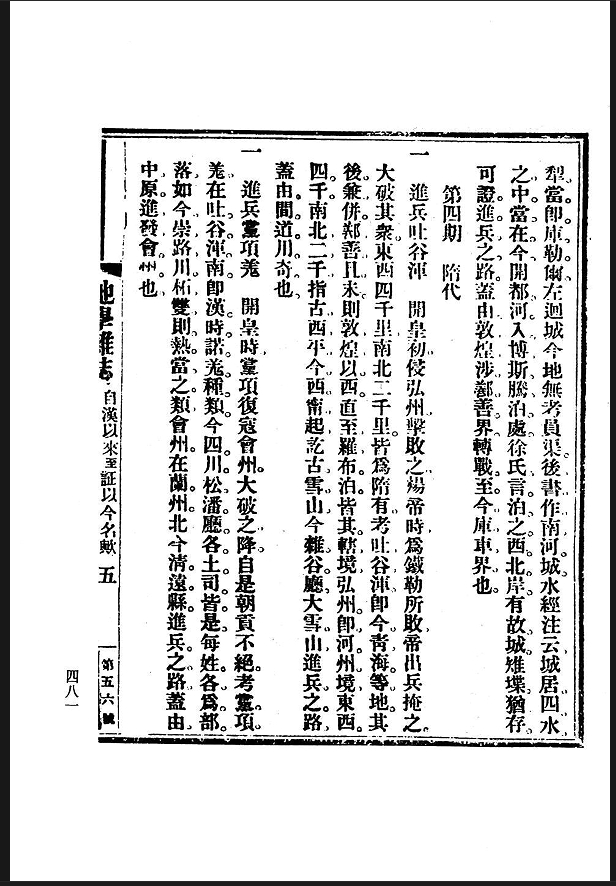 犁當卽庫勒爾左迴城今地無考員渠後書作南河城水經注云城居四水
之中當在今開都河入博斯騰泊處徐氏言泊之西北岸有故城雉堞猶存
可證進兵之路蓋由敦煌涉鄯善界轉戰至今庫車界也
第四期　隋代
一　進兵吐谷渾　開皇初侵弘州擊敗之煬帝時爲鐵勒所敗帝出兵掩之
大破其衆東西四千里南北二千里皆爲隋有考吐谷渾卽今靑海等地其
後兼併鄯善且末則敦煌以西直至羅布泊皆其轄境弘州卽河州境東西
四千南北二千指古西平今西甯起訖古雪山今雜谷廳大雪山進兵之路
蓋由間道川奇也
一　進兵黨項羌　開皇時黨項復寇會州大破之降自是朝貢不絕考黨項
羌在吐谷渾南卽漢時諾羌種類今四川松潘廳各土司皆是每姓各爲部
落如今崇路川柘雙則熱當之類會州在蘭州北今淸遠縣進兵之路蓋由
中原進發會州也
地學雜誌　自漢以來至証以今名歟　五
第五六號
四八一